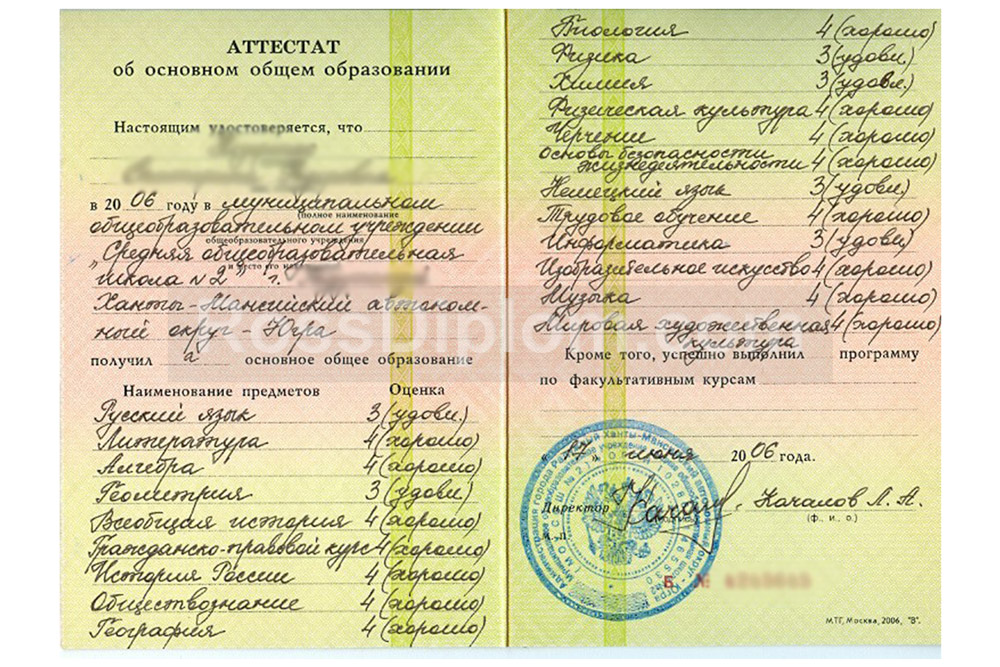 АТТЕСТАТ
об основном общем образовании
Настоящим удостоверяется, что
в 2006 году в муниципальном
(полное наименование
общеобразовательном учреждении
общеобразовательного учреждения
"Средняя общеобразовательная
и место его
школа №2" г.
Ханты-Мансийский автоном-
ный округ - Югра
получил а основное общее образование
Наименование предметов Оценка
Русский язык 3 (удовл.)
Литература 4 (хорошо)
Алгебра 4 (хорошо)
Геометрия 3 (удовл)
Всеобщая история 4 (хорошо)
Гражданско-правовой курс 4 (хорошо)
История России 4 (хорошо)
Обществознание 4 (хорошо)
География 4 (хорошо)
Биология 4 (хорошо)
Физика 3 (удовл.)
Химия 3 (удовл.)
Физическая культура 4 (хорошо)
Черчение 4 (хорошо)
Основы безопасности
жизнедеятельности 4 (хорошо)
Немецкий язык 3 (удовл.)
Трудовое обучение 4 (хорошо)
Информатика 3 (удовл)
Изобразительное искусство 4 (хорошо)
Музыка 4 (хорошо)
Мировая художественная 4 (хорошо)
культура
Кроме того, успешно выполнил программу
по факультативным курсам
"27" июня 2006 года.
Директор Качалов Л. А.
(ф., и., о.)
М.П.
Б №
МТГ, Москва, 2006, "В".